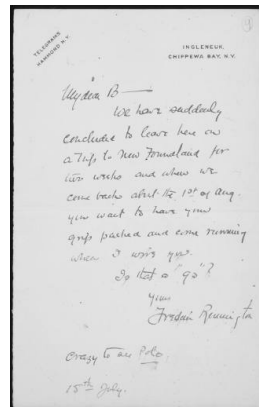 TELEGRAMS
HAMMOND N.Y.
INGLENEUK,
CHIPPEWA BAY, N.Y.
My dear B—
We have suddenly
concluded to leave here on
a trip to New Foundland for
two weeks and when we
come back about the 1st of Aug.
you want to have your
grip packed and come running
when I wire you.
Is that a "go"?
Yours
Frederic Remington
Crazy to see Polo
15th July.